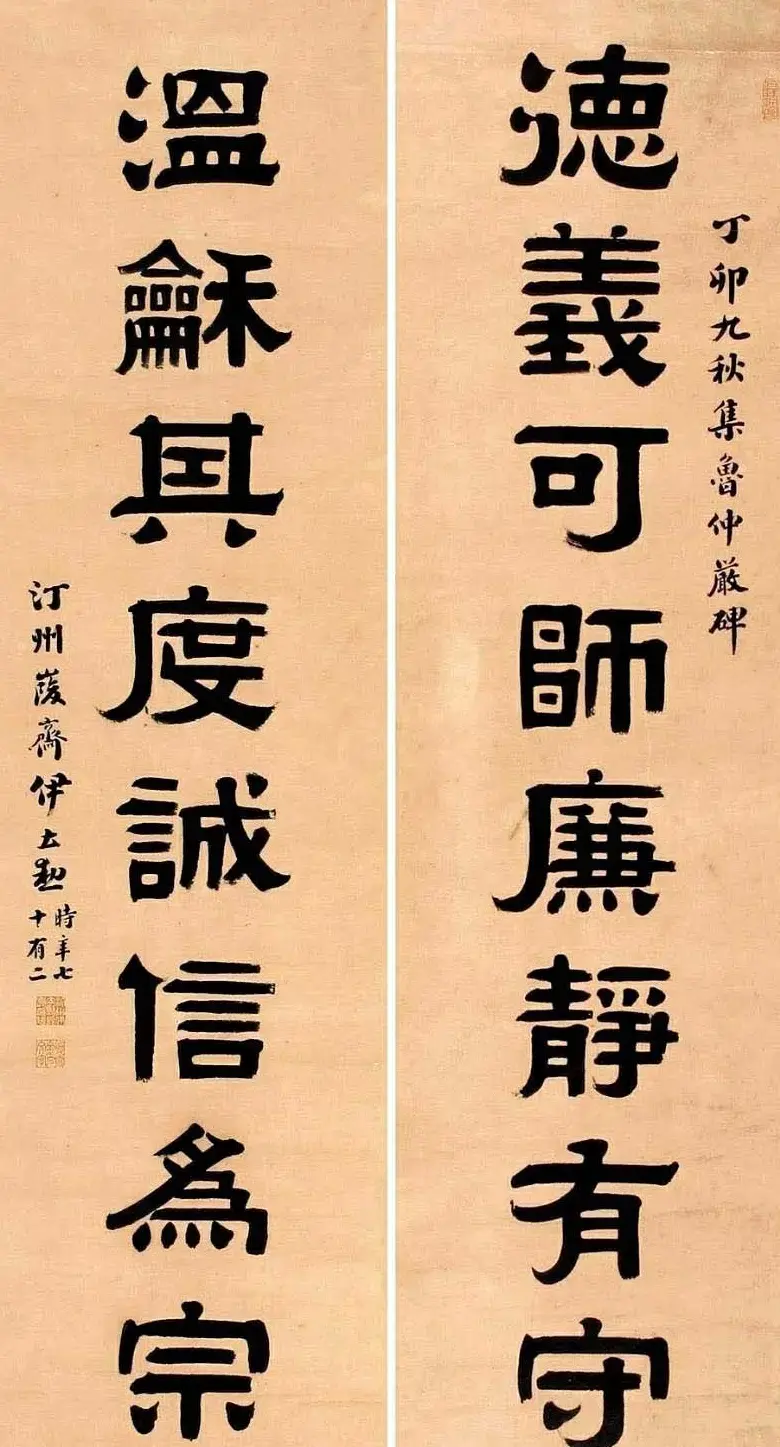 丁卯九秋集魯仲嚴碑
德義可師廉靜有守
溫龢其度誠信爲宗
汀州峻齋伊立勳
時年七
十有二